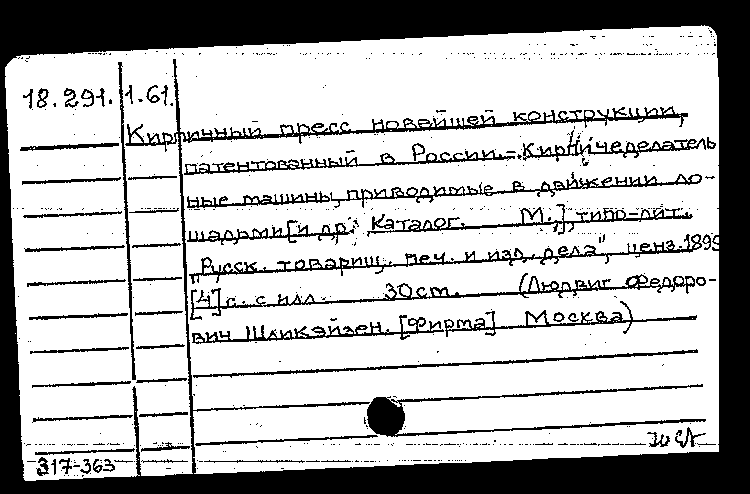 18.291. 1.61.
Кирпичный пресс новейшей конструкции,
патентованный в России.-Кирпичеделатель
ные машины, приводимые в движении ло-
шадьми [и др. Каталог. М.,] типо-лит.
"Русск. товарищ. печ. и изд. дела", ценз.1899
[4]с. с илл. 30см. (Людвиг Федоро-
вич Шликэйзен. [Фирма] Москва)
317-363